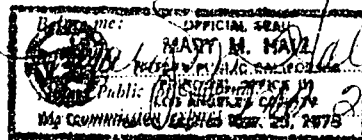 Before me:
OFFICIAL SEAL
MARY M.
NOTARY PUBLIC CALIFORNIA
Public
PRINCIPAL OFFICE IN
LOS ANGELES COUNTY
My Commission Expires 25, 1978